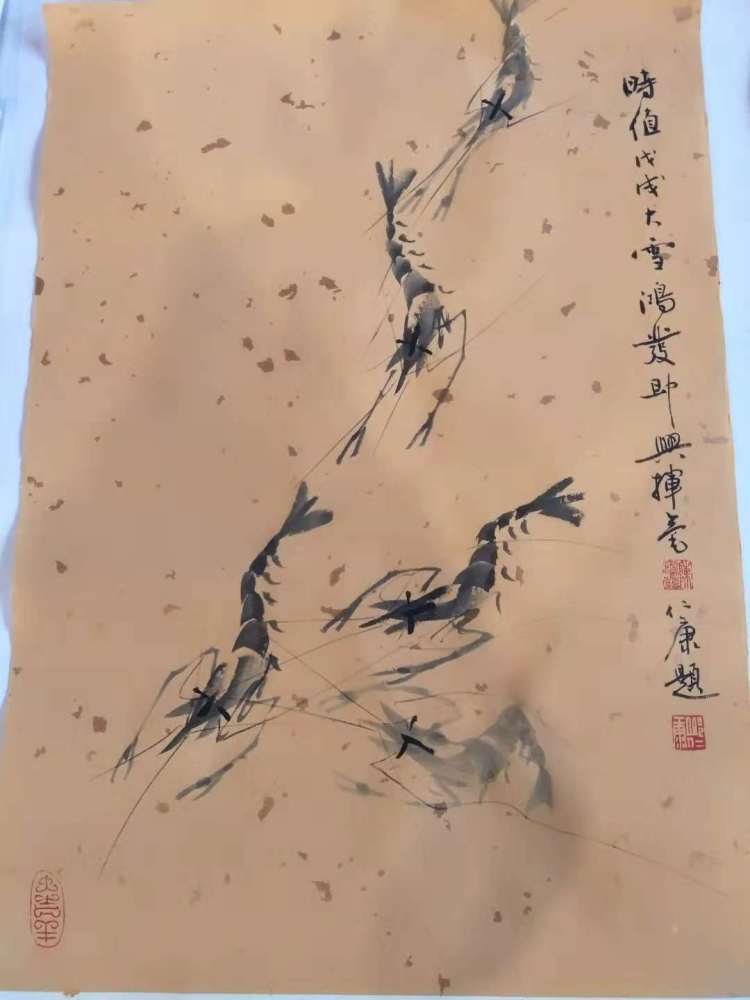 時值戊戌大雪鴻發即興揮毫
仁康題